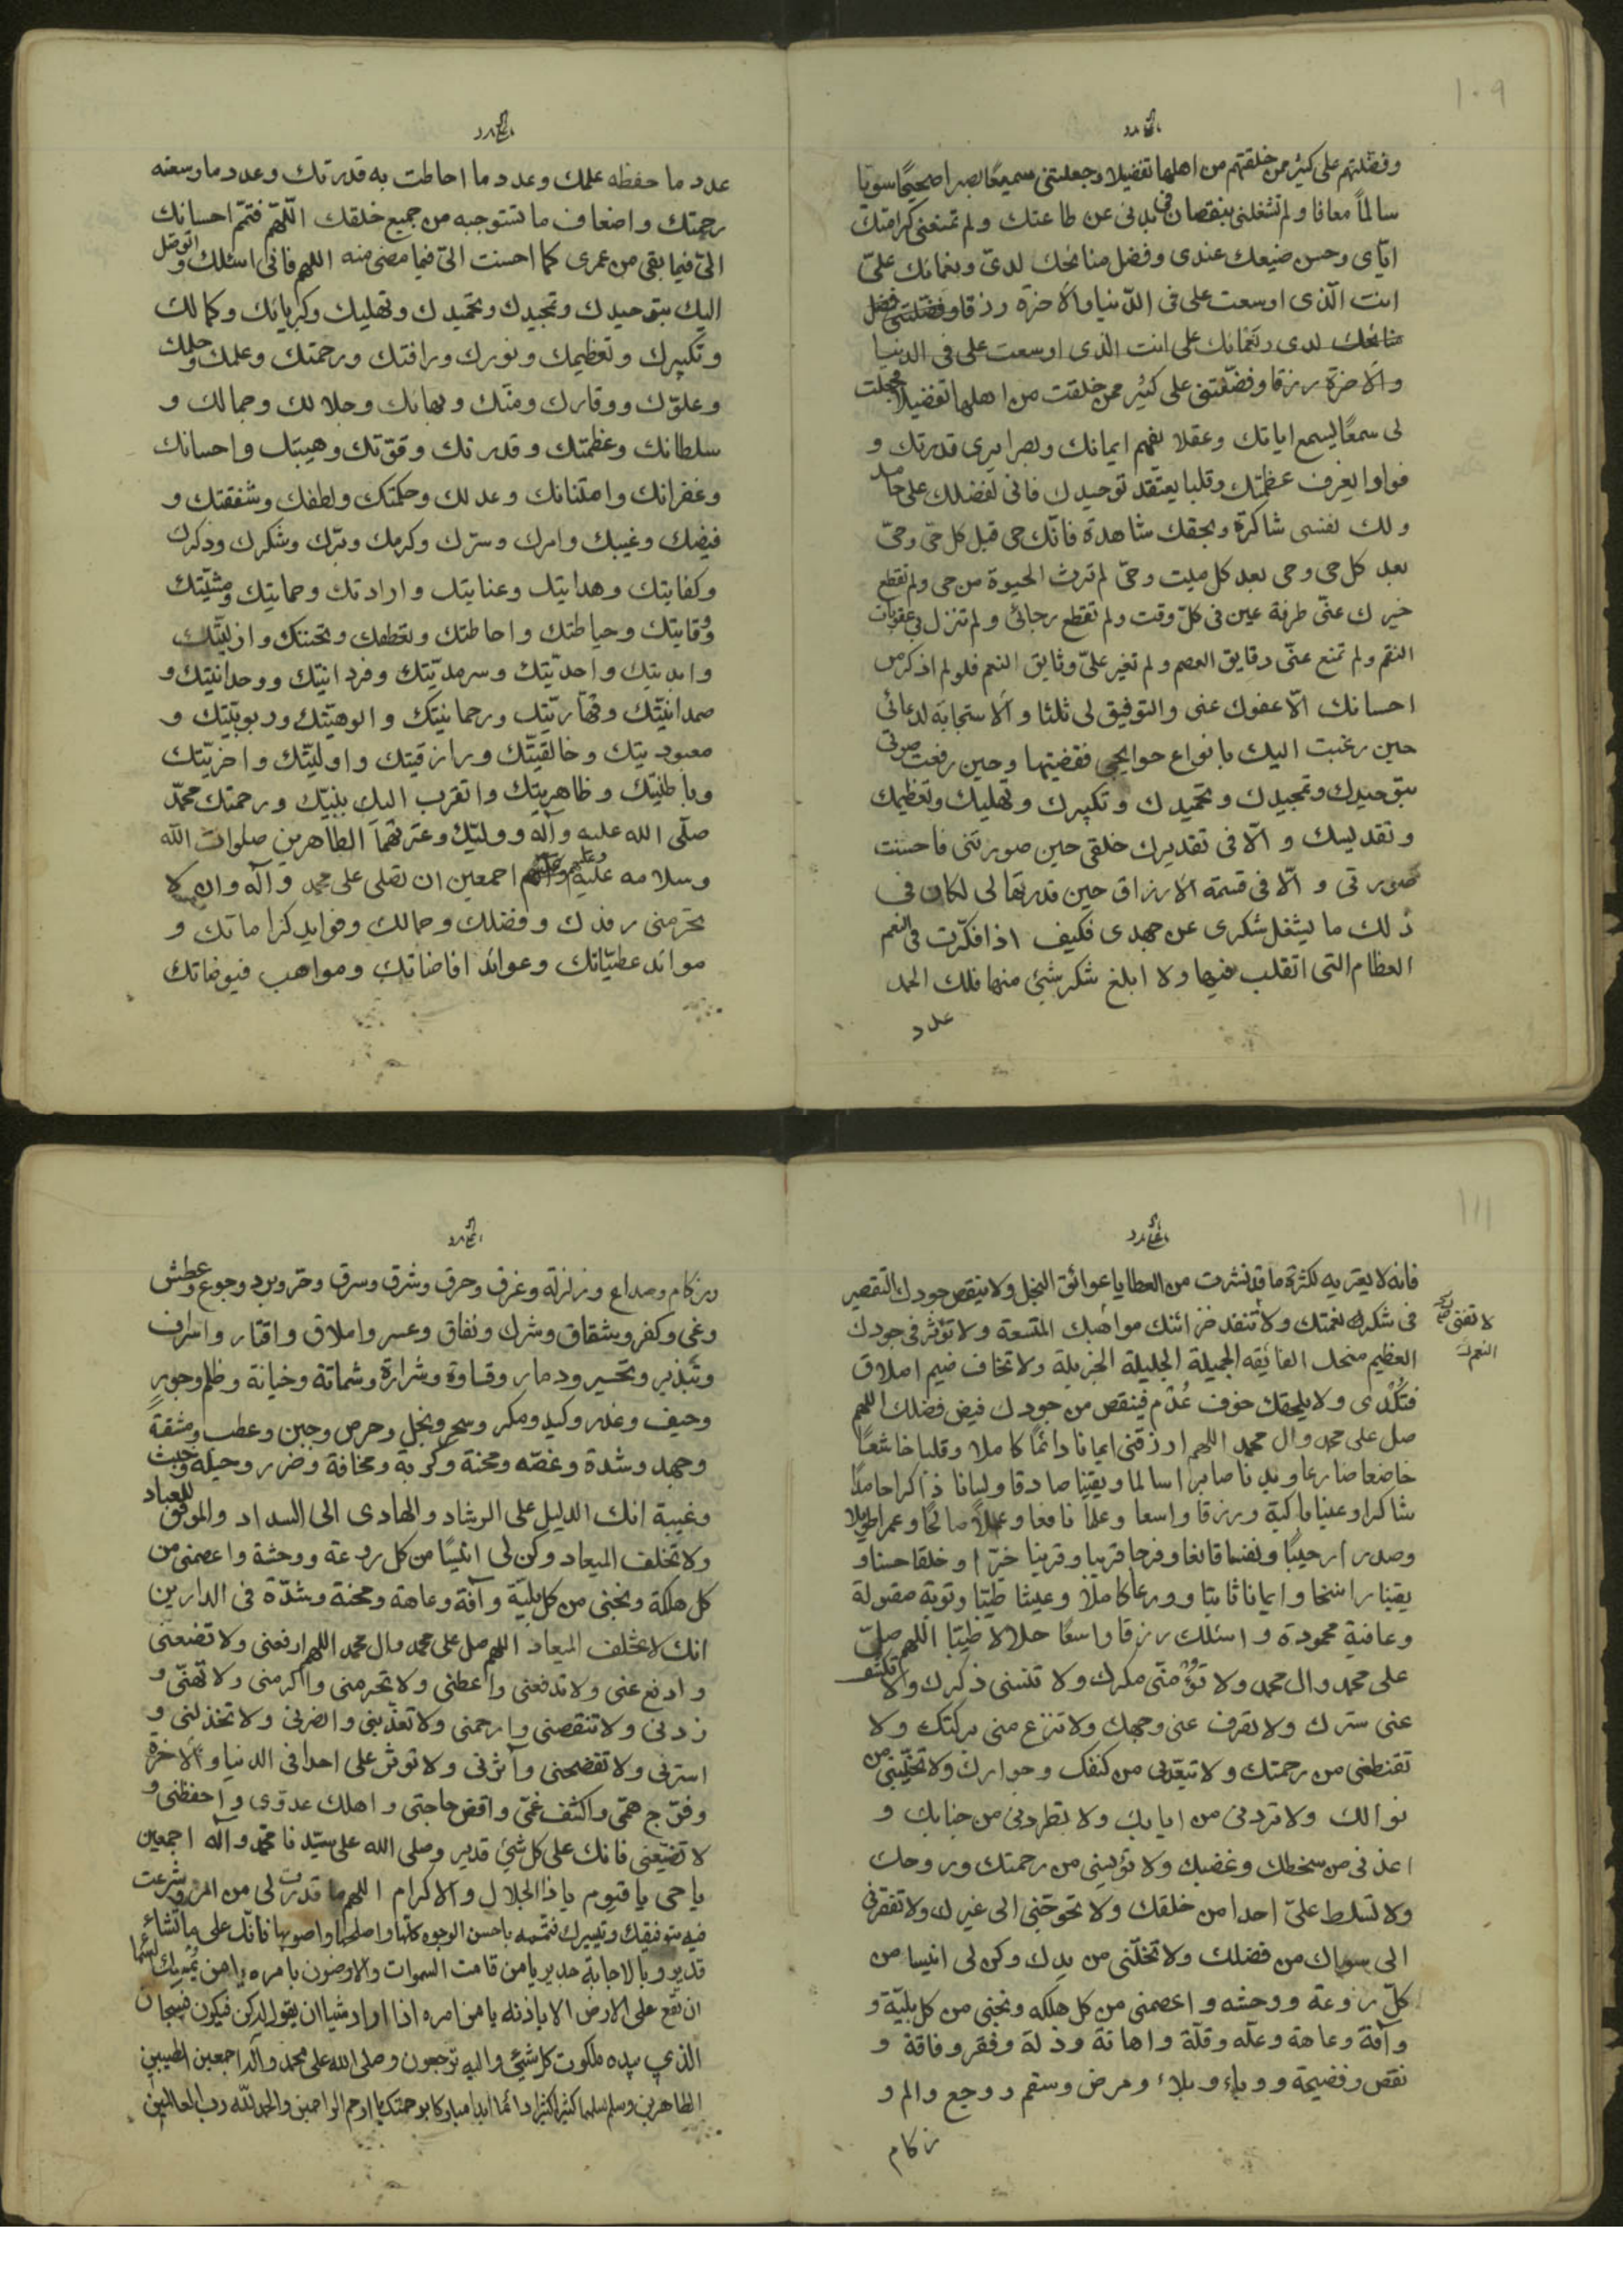 ١٠٩
وفضلتهم على كثير ممن خلقتهم من اهلها تفضيلا وجعلتنى سميعًا بصيرا صحيحًا سويًا
سالمًا معافا ولم تشغلنى بنقصان فى بدنى عن طاعتك ولم تمنعنى كرامتك
اياى وحسن صنيعك عندى وفضل منائحك لدىّ ونعمائك علىّ
انت الّذى اوسعت على فى الدّنيا والآخرة رزقا وفضلتنى فضل
منائحك لدى ونعمائك على انت الذى اوسعت على فى الدنيا
والاخرة رزقا وفضّلتنى على كثير ممن خلقت من اهلها تفضيلا فجعلت
لى سمعًا يسمع اياتك وعقلا يفهم ايمانك وبصرا يرى قدرتك و
فوادا يعرف عظمتك وقلبا يعتقد توحيدك فانى لفضلك على حامد
ولك نفسى شاكرة وبحقك شاهدة فانّك حى قبل كل حىّ وحىّ
بعد كل حى وحى بعد كل ميت وحىّ لم ترث الحيوة من حى ولم تقطع
خيرك عنّى طرفة عين فى كلّ وقت ولم تقطع رجائى ولم تنزل بى عقوبات
النقم ولم تمنع عنّى دقايق العصم ولم تغير علىّ وثايق النعم فلو لم اذكر من
احسانك الّا عفوك عنى والتوفيق لى ثلثا والاستجابة لدعائى
حين رغبت اليك بانواع حوايجى فقضيتها وحين رفعت صوتى
بتوحيدك وتمجيدك وتحميدك وتكبيرك وتهليلك وتعظيمك
وتقديسك والّا فى تقديرك خلقى حين صورتنى فاحسنت
صورتى والّا فى قسمة الارزاق حين قدرتها لى لكان فى
ذلك ما يشغل شكرى عن جهدى فكيف اذا فكّرت فى النعم
العظام التى اتقلب فيها ولا ابلغ شكر شئ منها فلك الحمد
عدد
عدد ما حفظه علمك وعدد ما احاطت به قدرتك وعدد ما وسعته
رحمتك واضعاف ما تستوجبه من جميع خلقك اللّهمّ فتمّم احسانك
الىّ فيما بقى من عمرى كما احسنت الىّ فيما مضى منه اللهم فانى اسئلك واتوسّل
اليك بتوحيدك وتمجيدك وتحميدك وتهليلك وكبريائك وكمالك
وتكبيرك وتعظيمك ونورك ورافتك ورحمتك وعلمك وحلمك
وعلوّك ووقارك ومنّك وبهائك وجلالك وجمالك و
سلطانك وعظمتك وقدرتك وقوّتك وهيبتك واحسانك
وغفرانك وامتنانك وعدلك وحكمتك ولطفك وشفقتك و
فيضك وغيبك وامرك وسترك وكرمك وبرّك وشكرك وذكرك
وكفايتك وهدايتك وعنايتك وارادتك وحمايتك ومشيّتك
ووقايتك وحياطتك واحاطتك وتعطفك وتحننك وازليّتك
وابديتك واحديّتك وسرمديّتك وفردانيتك ووحدانيّتك و
صمدانيّتك وقهاريّتك ورحمانيتك والوهيّتك وربوبيّتك و
معبوديتك وخالقيّتك ورازقيتك واوليّتك واخريّتك
وباطنيّتك وظاهريتك واتقرب اليك بنبيّك ورحمتك محمّد
صلّى الله عليه وآله ووليّك وعترتهما الطاهرين صلوات الله
وسلامه عليه وعليهم اجمعين ان تصلى على محمد وآله وان لا
تحرمنى رفدك وفضلك وجمالك وفوايد كراماتك و
موائد عطيّاتك وعوائد افاضاتك ومواهب فيوضاتك
١١١
فانه لا يعتريه لكثرة ما قد نشرت من العطايا عوائق البخل ولا ينقص جودك التقصير
فى شكر نعمتك ولا تنفد خزائنك مواهبك المتسعة ولا تؤثر فى جودك
العظيم منحك الفائقه الجميلة الجليلة الجزيلة ولا تخاف ضيم املاق
فتُكْدى ولا يلحقك خوف عُدْم فينقص من جودك فيض فضلك اللهم
صل على محمد وال محمد اللهم ارزقنى ايمانا دائمًا كاملا وقلبا خاشعًا
خاضعا ضارعا وبدنا صابرا سالما ويقينا صادقا ولسانا ذاكرا حامدًا
شاكرا وعينا باكية ورزقا واسعا وعلما نافعا وعملًا صالحًا وعمرا طويلا
وصدرا رحيبًا ونفسا قانعا وفرجا قريبا وقرينا خيّرا وخلقا حسنا و
يقينا راسخا وايمانا ثابتا وورعا كاملًا وعيشا طيّبا وتوبة مقبولة
وعافية محمودة واسئلك رزقا واسعًا حلالا طيّبا اللهم صلّ
على محمد وال محمد ولا تؤمنّى مكرك ولا تنسنى ذكرك ولا تكشف
عنى سترك ولا تصرف عنى وجهك ولا تنزع منى بركتك ولا
تقنطنى من رحمتك ولا تبعّدنى من كنفك وجوارك ولا تخيّبنى من
نوالك ولا تردنى من ايابك ولا تطردنى من جنابك و
اعذنى من سخطك وغضبك ولا تؤيسنى من رحمتك وروحك
ولا تسلط علىّ احدا من خلقك ولا تحوجنى الى غيرك ولا تفقرنى
الى سواك من فضلك ولا تخلّنى من يدك وكن لى انيسا من
كلّ روعة ووحشه واعصمنى من كل هلكه ونجنى من كل بليّة و
وآفة وعاهة وعلّه وقلّة واهانة وذلة وفقر وفاقة و
نقص وفضيحة ووباء وبلاء ومرض وسقم ووجع والم و
زكام
لا تفنى
النعم
وزكام وصداع وزلزلة وغرق وحرق وشرق وسرق وحرّ وبرد وجوع وعطش
وغى وكفر وشقاق وشرك ونفاق وعسر واملاق واقتار واسراف
وتبذير وتحسير ودمار وقساوة وشرارة وشماتة وخيانة وظلم وجور
وحيف وغدر وكيد ومكر وسحر وبخل وحرص وجبن وعطب ومشقة
وجهد وشدة وغصّه ومحنة وكربة ومخافة وضرر وحيلة وخبث
وغيبة انك الدليل على الرشاد والهادى الى السداد والموفق للعباد
ولا تخلف الميعاد وكن لى انيسًا من كل روعة ووحشة واعصمنى من
كل هلكة ونجنى من كل بليّة وآفة وعاهة ومحنة وشدّة فى الدارين
انك لا تخلف الميعاد اللهم صل على محمد وال محمد اللهم ارفعنى ولا تضعنى
وادفع عنى ولا تدفعنى واعطنى ولا تحرمنى واكرمنى ولا تهنّى و
زدنى ولا تنقصنى وارحمنى ولا تعذّبنى وانصرنى ولا تخذلنى و
استرنى ولا تفضحنى وآثرنى ولا توثر على احدا فى الدنيا والآخرة
وفرّج همّى واكشف غمّى واقض حاجتى واهلك عدوّى واحفظنى و
لا تضيّعنى فانك على كل شئ قدير وصلى الله على سيّدنا محمّد وآله اجمعين
ياحى ياقيوم ياذالجلال والاكرام اللهم ما قدرت لى من امر وشرعت
فيه بتوفيقك وتيسيرك فتمّمه باحسن الوجوه كلّها واصلحها واصوبها فانّك على ما تشاء
قدير وبالاجابة جدير يا من قامت السموات والارضون بامره يا من يمسك السّماء
ان تقع على الارض الا باذنه يا من امره اذا اراد شيئا ان يقول له كن فيكون فسبحان
الذى بيده ملكوت كل شئ واليه ترجعون وصلى الله على محمد وآله اجمعين الطيبين
الطاهرين وسلم تسليما كثيرا كثيرا دائما ابدا مباركا برحمتك يا ارحم الراحمين والحمد لله رب العالمين